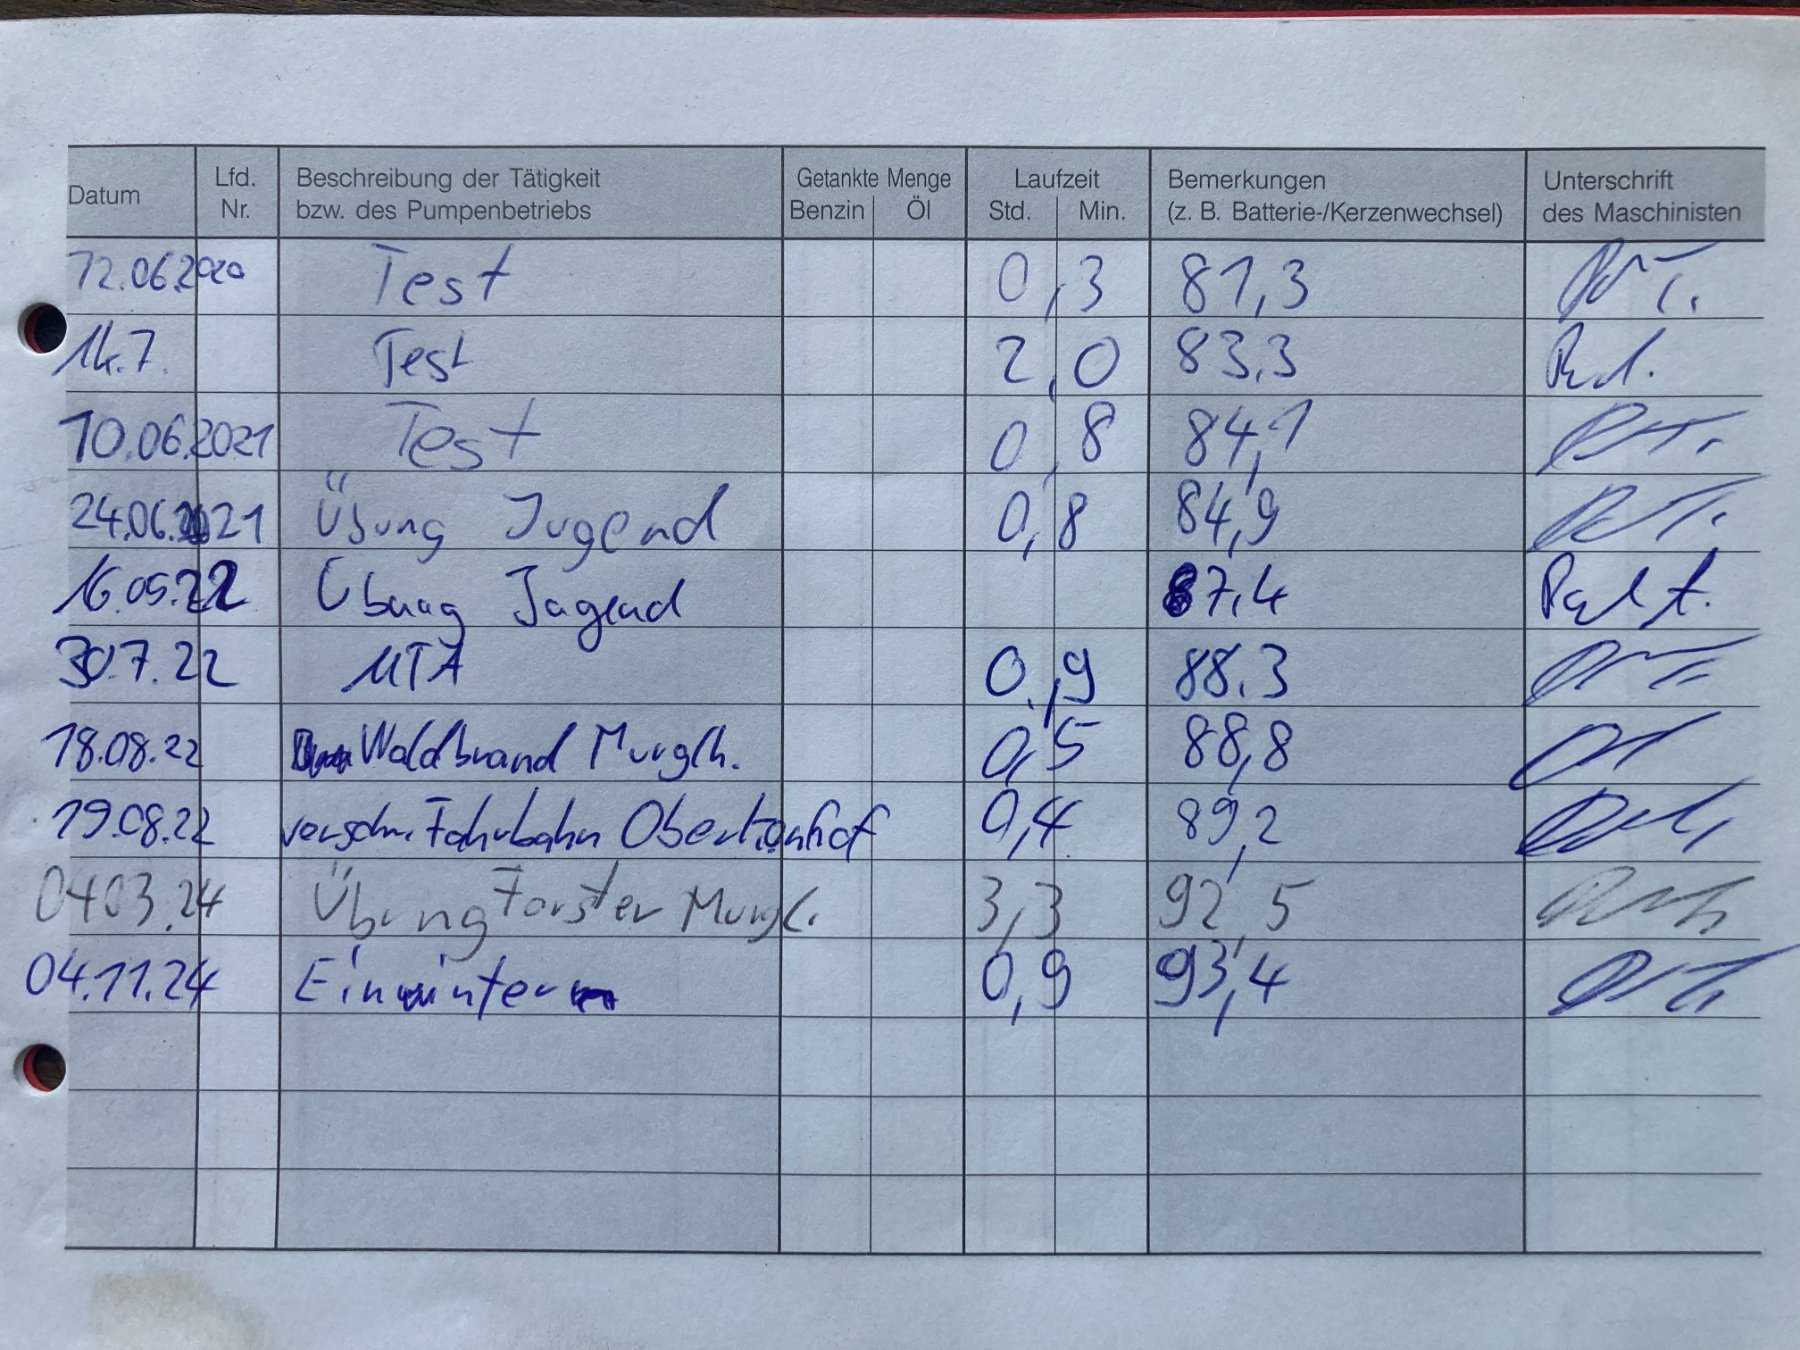 Datum Lfd. Nr. Beschreibung der Tätigkeit bzw. des Pumpenbetriebs Getankte Menge Benzin Öl Laufzeit Std. Min. Bemerkungen (z. B. Batterie-/Kerzenwechsel) Unterschrift des Maschinisten
12.06.2020 Test 0,3 81,3
14.7. Test 2,0 83,3
10.06.2021 Test 0,8 84,1
24.06.2021 Übung Jugend 0,8 84,9
16.05.22 Übung Jugend 87,4
30.7.22 MTA 0,9 88,3
18.08.22 Waldbrand Murglh. 0,5 88,8
19.08.22 verschm. Fahrbahn 0,4 89,2
04 03.24 Übung Forster Murgl. 3,3 92,5
04.11.24 Einwintern 0,9 93,4